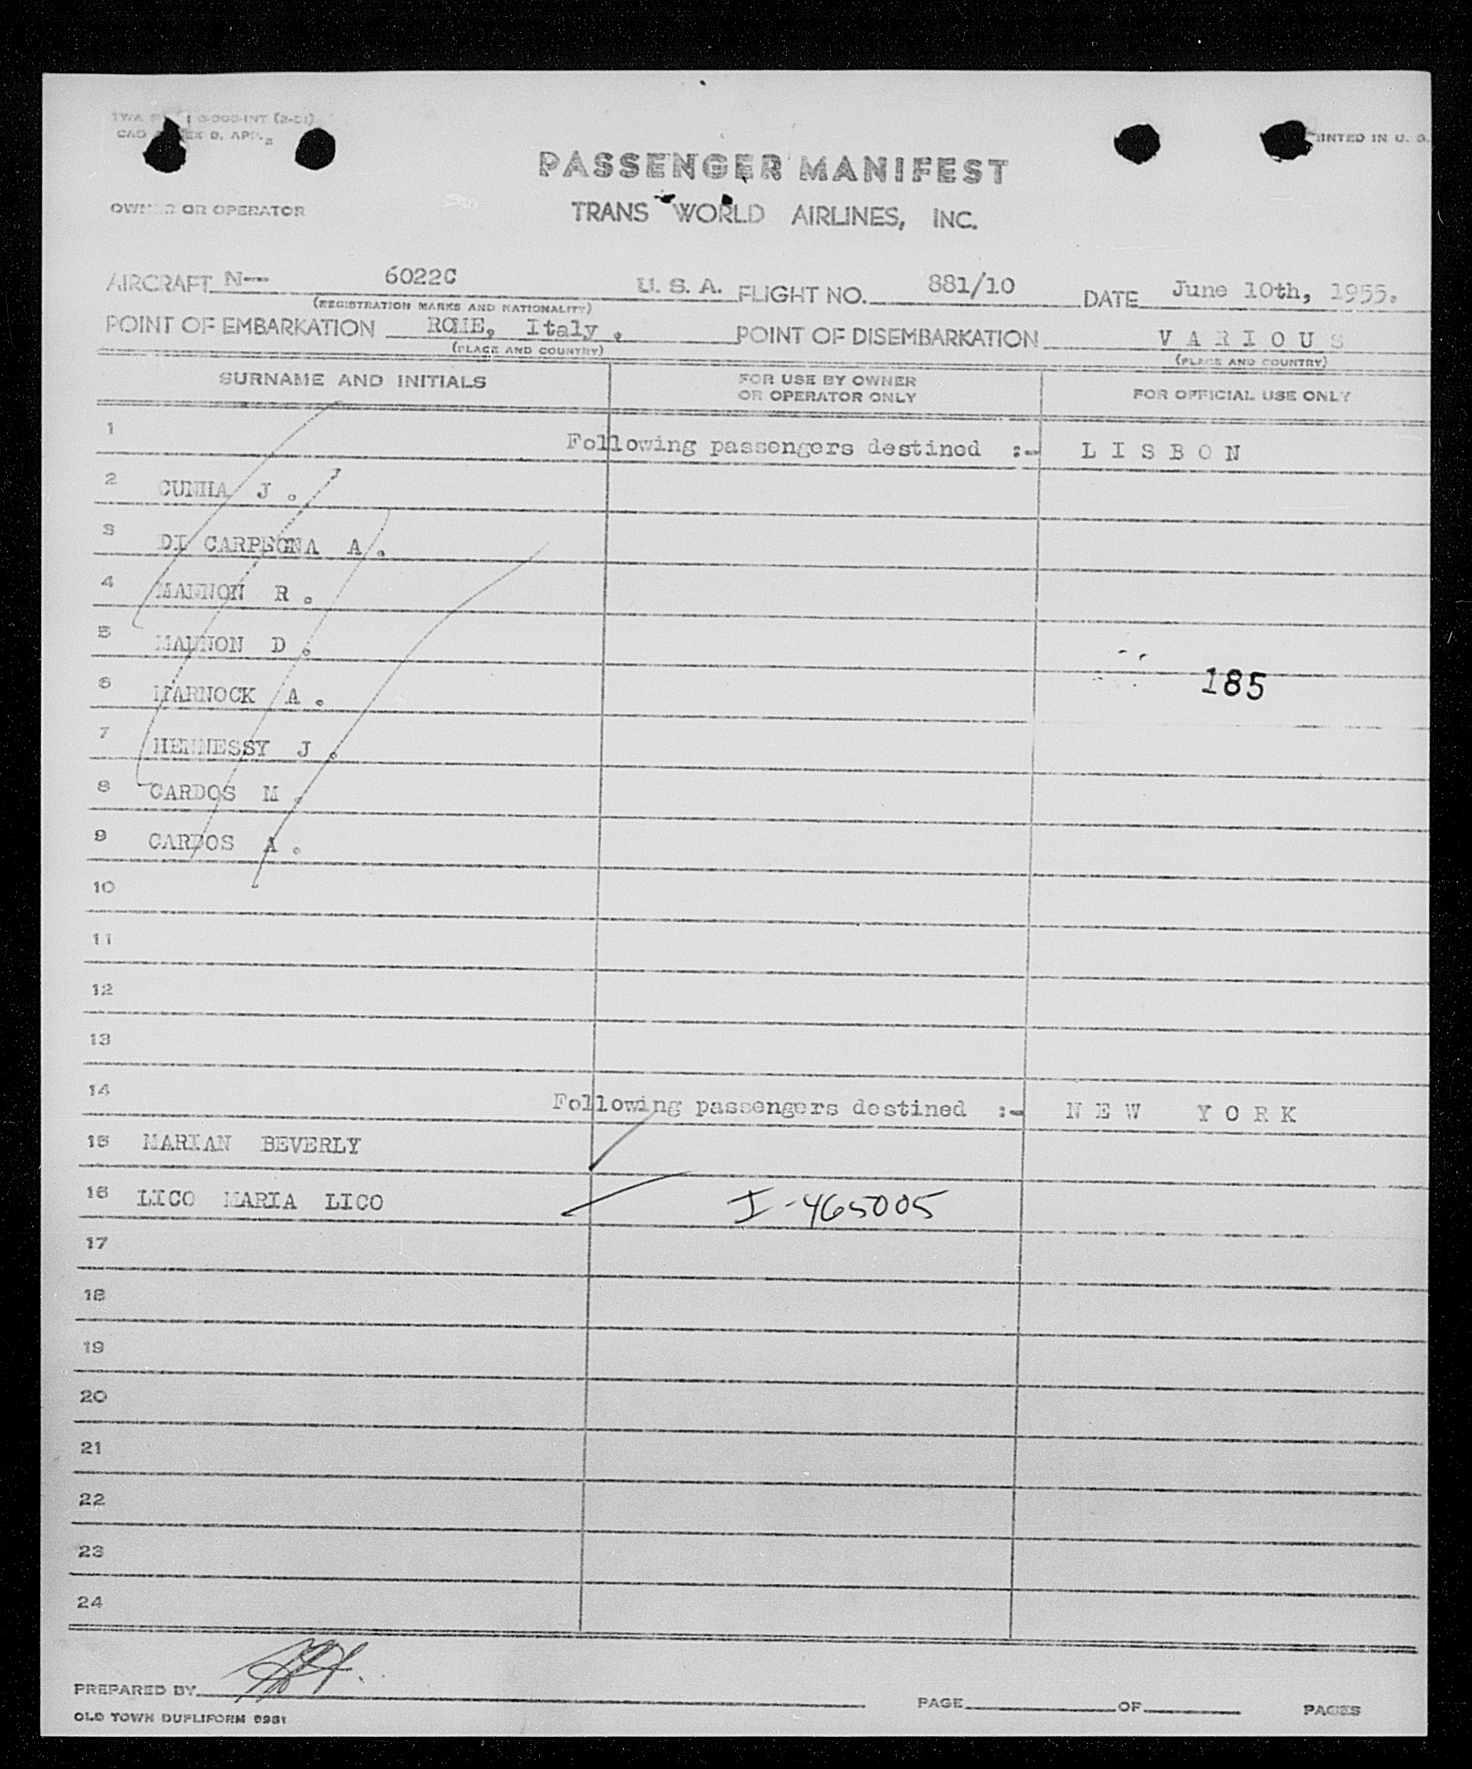 PRINTED IN U. S.
PASSENGER MANIFEST
OWNER OR OPERATOR
TRANS WORLD AIRLINES, INC.
AIRCRAFT N-- 6022C U. S. A. FLIGHT NO. 881/10 DATE June 10th, 1955.
(REGISTRATION MARKS AND NATIONALITY)
POINT OF EMBARKATION ROME, Italy . POINT OF DISEMBARKATION V A R I O U S
(PLACE AND COUNTRY) (PLACE AND COUNTRY)
SURNAME AND INITIALS FOR USE BY OWNER OR OPERATOR ONLY FOR OFFICIAL USE ONLY
1 Following passengers destined :- L I S B O N
2 CUNHA J .
3 DI CARPEGNA A .
4 MANNON R .
5 MANNON D .
185
6 MARNOCK A .
7 HENNESSY J .
8 CARDOS M .
9 CARDOS A .
10
11
12
13
14 Following passengers destined :- N E W Y O R K
15 MARIAN BEVERLY
16 LICO MARIA LICO I-465005
17
18
19
20
21
22
23
24
PREPARED BY PAGE OF PAGES
OLD TOWN DUPLIFORM 9981